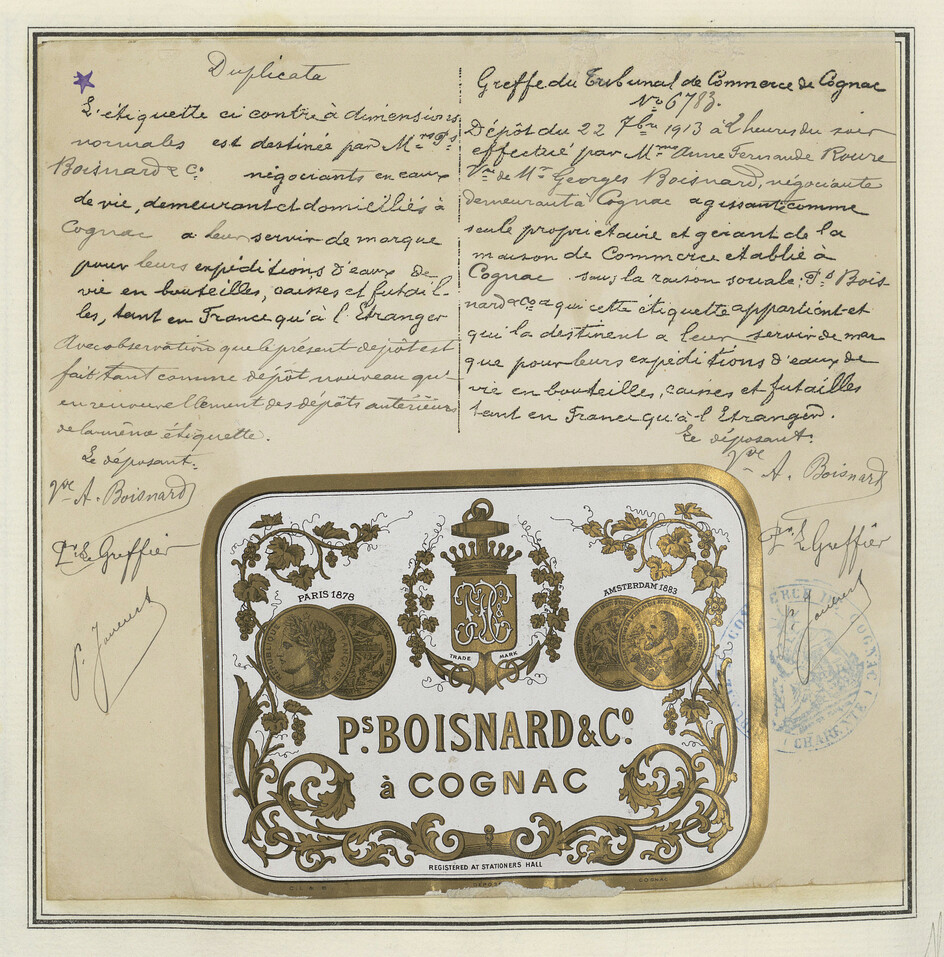 Duplicata
L'étiquette ci contre à dimensions
normales est destinée par Mrs Ps
Boisnard & Co. négociants en eaux
de vie, demeurant et domiciliés à
Cognac a leur servir de marque
pour leurs expéditions d'eaux de
vie en bouteilles, caisses et futail-
les, tant en France qu'à l'Etranger
Avec observation que le présent dépôt est
fait tant comme dépôt nouveau qu'
en renouvellement des dépôts antérieurs
de la même étiquette.
Le déposant.
Vve A. Boisnard
Pr Le Greffier
Greffe du Tribunal de Commerce de Cognac
No 6783.
Dépôt du 22 7bre 1913 à 2 heures du soir
effectué par Mme Anne Fernande Roure
Vve de Mr Georges Boisnard, négociante
demeurant à Cognac agissant comme
seule propriétaire et gérant de la
maison de Commerce établie à
Cognac sous la raison sociale: Ps Bois-
nard & Co a qui cette étiquette appartient et
qui la destinent a leur servir de mar
que pour leurs expéditions d'eaux de
vie en bouteilles, caisses et futailles
tant en France qu'à l'Etranger.
Le déposant.
Vve A. Boisnard
Pr Le Greffier
COGNAC
CHARENTE
PARIS 1878
AMSTERDAM 1883
TRADE MARK
Ps. BOISNARD & Co.
à COGNAC
REGISTERED AT STATIONERS HALL
DÉPOSÉ
COGNAC